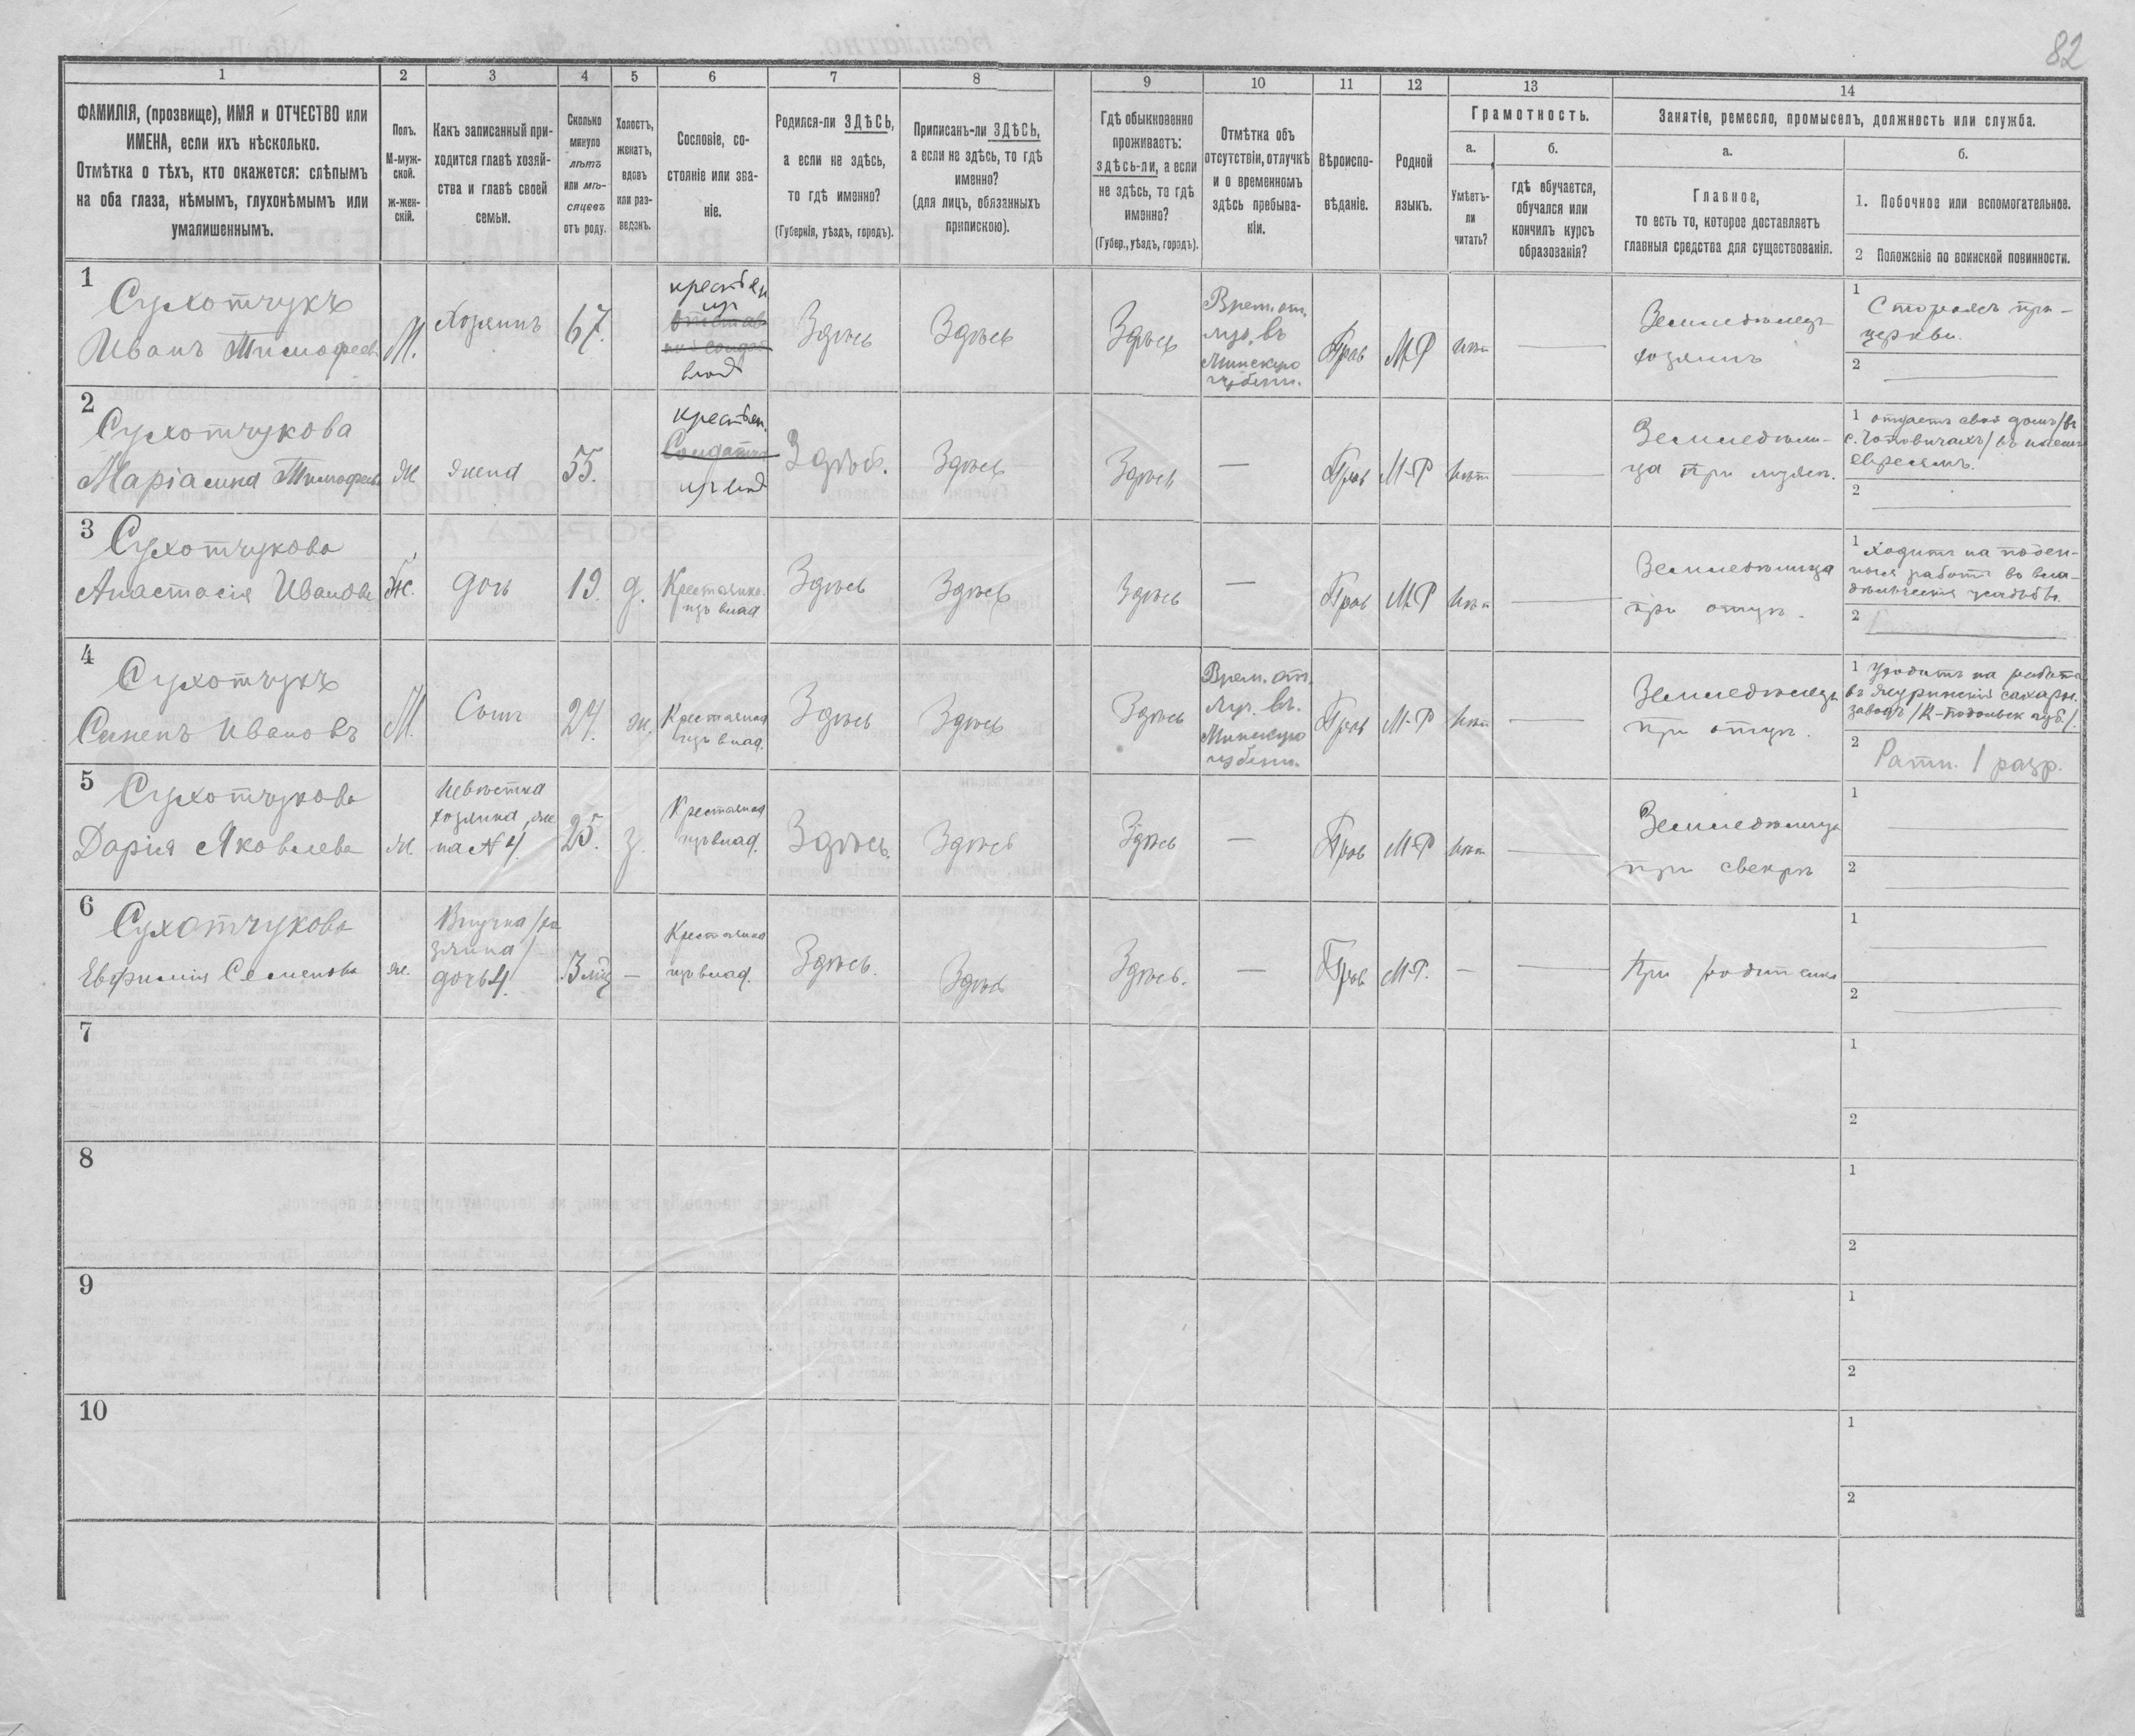 82
1
2
3
4
5
6
7
8
9
10
11
12
13
14
ФАМИЛІЯ, (прозвище), ИМЯ и ОТЧЕСТВО или
ИМЕНА, если ихъ нѣсколько.
Отмѣтка о тѣхъ, кто окажется: слѣпымъ
на оба глаза, нѣмымъ, глухонѣмымъ или
умалишеннымъ.
Полъ.
М-муж-
ской.
ж-жен-
скій.
Какъ записанный при-
ходится главѣ хозяй-
ства и главѣ своей
семьи.
Сколько
минуло
лѣтъ
или мѣ-
сяцевъ
отъ роду.
Холостъ,
женатъ,
вдовъ
или раз-
веденъ.
Сословіе, со-
стояніе или зва-
ніе.
Родился-ли ЗДѢСЬ,
а если не здѣсь,
то гдѣ именно?
(Губернія, уѣздъ, городъ).
Приписанъ-ли ЗДѢСЬ,
а если не здѣсь, то гдѣ
именно?
(для лицъ, обязанныхъ
припискою).
Гдѣ обыкновенно
проживаетъ:
здѣсь-ли, а если
не здѣсь, то гдѣ
именно?
(Губер., уѣздъ, городъ).
Отмѣтка объ
отсутствіи, отлучкѣ
и о временномъ
здѣсь пребыва-
ніи.
Вѣроиспо-
вѣданіе.
Родной
языкъ.
Грамотность.
а.
б.
Умѣетъ-
ли
читать?
гдѣ обучается,
обучался или
кончилъ курсъ
образованія?
Занятіе, ремесло, промыселъ, должность или служба.
а.
б.
Главное,
то есть то, которое доставляетъ
главныя средства для существованія.
1. Побочное или вспомогательное.
2 Положеніе по воинской повинности.
1
Сухотчукъ
Иванъ Тимофеев
М.
Хозяинъ
67.
крестьян
из
влад
Здѣсь
Здѣсь
Здѣсь
Врем. от.
луч. въ
Минскую
губерн.
Прав
М-Р
нѣт
Земледѣлецъ
хозяинъ
1 Сторожъ при
церкви.
2
2
Сухотчукова
Маріанна Тимофеев
Ж
жена
55.
крестьян.
Солдатка
из влад
Здѣсь.
Здѣсь
Здѣсь
—
Прав
М-Р
нѣт
Земледѣли-
ца при мужѣ.
1 отдаетъ свой домъ /въ
евреямъ.
2
3
Сухотчукова
Анастасія Иванова
Ж.
дочь
19.
д.
Крестьянка
изъ влад
Здѣсь
Здѣсь
Здѣсь
—
Прав
М-Р
нѣт
Земледѣлица
при отцѣ.
1 Ходитъ на поден-
ныя работы во вла-
дѣльческія усадьбы.
2
4
Сухотчукъ
Семенъ Ивановъ
М.
Сынъ
24.
ж.
Крестьянин
изъ влад.
Здѣсь
Здѣсь
Здѣсь
Врем. от.
луч. въ.
Минскую
губерн.
Прав
М-Р
нѣт
Земледѣлецъ
при отцѣ.
1 Уходитъ на работы
въ сахарн.
заводъ /К-Подольск губ./
2 Ратн. 1 разр.
5
Сухотчукова
Дарія Яковлева
Ж.
Невѣстка
хозяина, же
на № 4
25.
з.
Крестьянка
изъ влад.
Здѣсь.
Здѣсь
Здѣсь
—
Прав
М-Р
нѣт
Земледѣлица
при свекрѣ
1
2
6
Сухотчукова
Евфимія Семенова
Ж.
Внучка /хо
зяина/
дочь 4.
3 мѣс
—
Крестьянка
изъ влад.
Здѣсь.
Здѣсь
Здѣсь.
—
Прав
М-Р.
—
При родителя
1
2
7
1
2
8
1
2
9
1
2
10
1
2